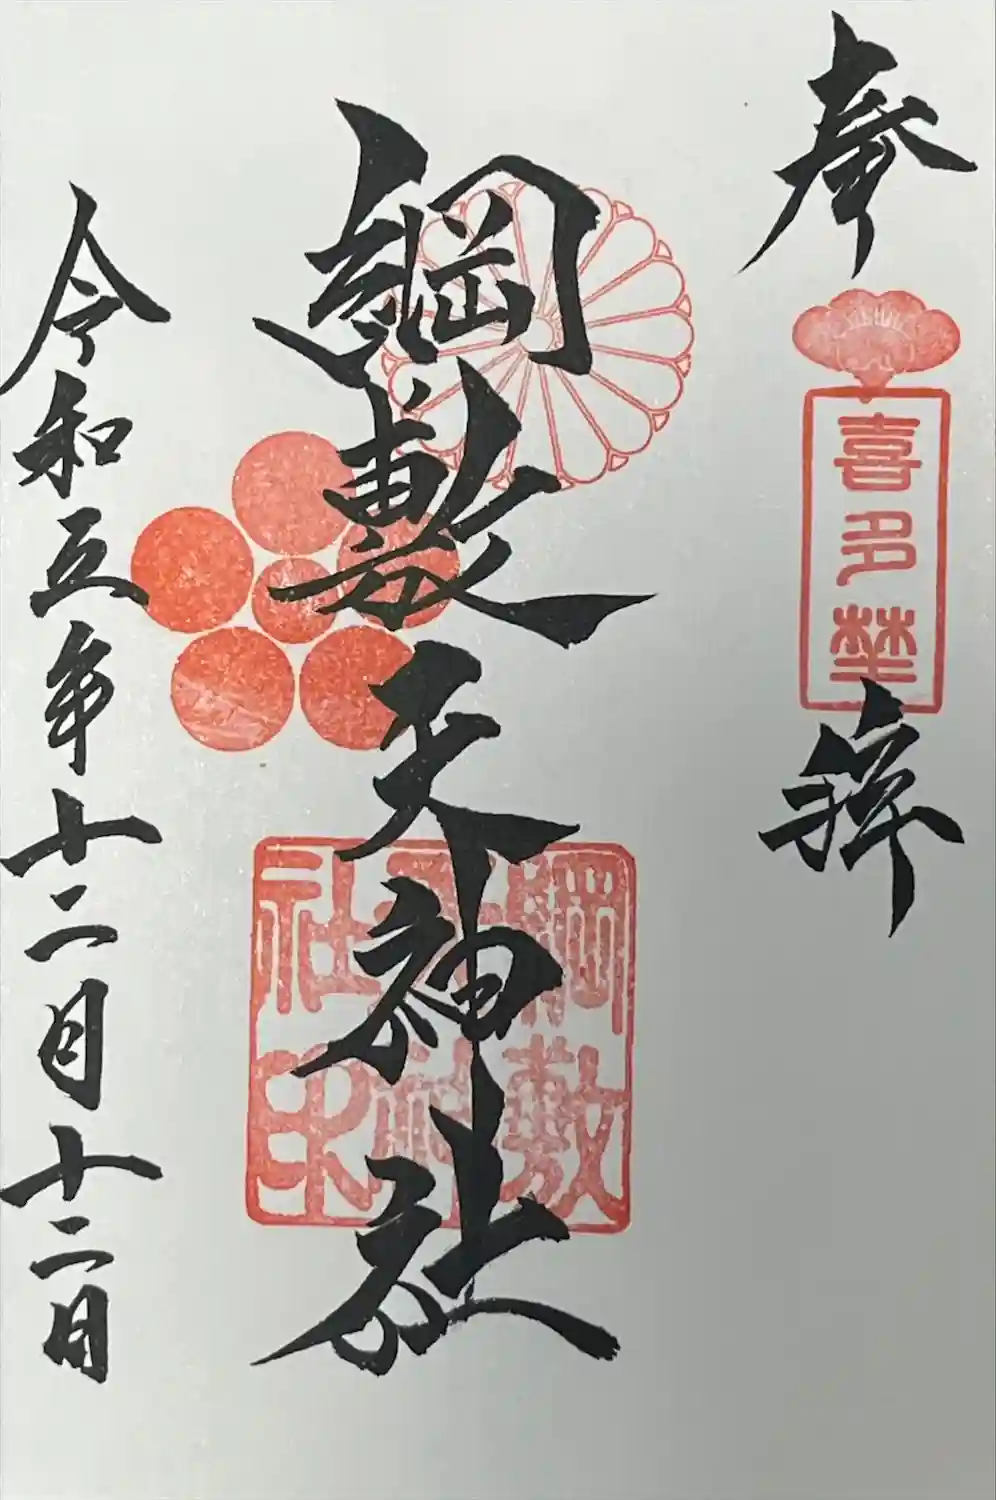 奉拝
喜多埜
綱敷天神社
綱敷天神社印
令和五年十二月十二日